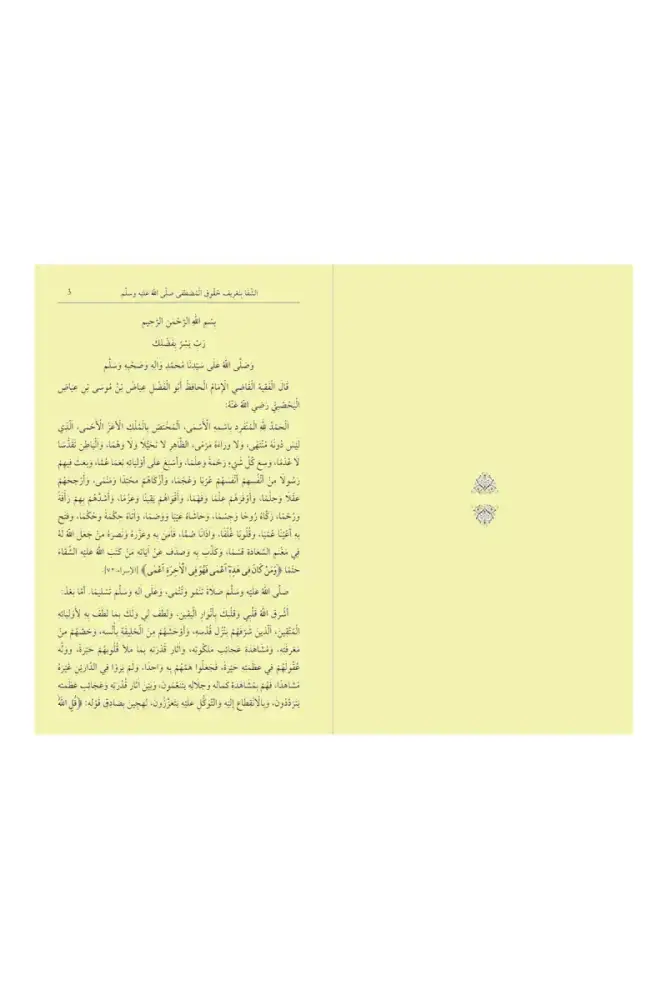 الشفا بتعريف حُقُوقِ الْمُصْطَفى صلَّى اللهُ عَلَيْهِ وسلَّم
3
بِسْمِ اللهِ الرَّحْمَنِ الرَّحِيمِ
رَبِّ يَسِّرْ بِفَضْلِكَ
وَصَلَّى اللهُ عَلَى سَيِّدِنَا مُحَمَّدٍ وَآلِهِ وَصَحْبِهِ وَسَلَّمِ
قَالَ الْفَقِيهُ الْقَاضِي الْإِمَامُ الْحَافِظُ أَبُو الْفَضْلِ عِيَاضُ بْنُ مُوسَى بْنِ عِيَاضٍ
الْيَحْصُبِيُّ رَضِيَ اللهُ عَنْهُ:
الْحَمْدُ للهِ الْمُتَفَرِّدِ بِاسْمِهِ الْأَسْمَى، الْمُخْتَصِّ بِالْمُلْكِ الْأَعَزِّ الْأَحْمَى، الَّذِي
لَيْسَ دُونَهُ مُنْتَهَى، وَلَا وَرَاءَهُ مَرْمَى، الظَّاهِرِ لَا تَخَيُّلًا وَلَا وَهْمًا، وَالْبَاطِنِ تَقَدُّسًا
لَا عُدْمًا، وَسِعَ كُلَّ شَيْءٍ رَحْمَةً وَعِلْمًا، وَأَسْبَغَ عَلَى أَوْلِيَائِهِ نِعَمًا عُمًّا، وَبَعَثَ فِيهِمْ
رَسُولًا مِنْ أَنْفُسِهِمْ أَنْفَسَهُمْ عُرْبًا وَعُجْمًا، وَأَزْكَاهُمْ مَحْتِدًا وَمَنْمًى، وَأَرْجَحَهُمْ
عَقْلًا وَحِلْمًا، وَأَوْفَرَهُمْ عِلْمًا وَفَهْمًا، وَأَقْوَاهُمْ يَقِينًا وَعَزْمًا، وَأَشَدَّهُمْ بِهِمْ رَأْفَةً
وَرُحْمًا، زَكَّاهُ رُوحًا وَجِسْمًا، وَحَاشَاهُ عَيْبًا وَوَصْمًا، وَآتَاهُ حِكْمَةً وَحُكْمًا، وَفَتَحَ
بِهِ أَعْيُنًا عُمْيًا، وَقُلُوبًا غُلْفًا، وَآذَانًا صُمًّا، فَآمَنَ بِهِ وَعَزَّرَهُ وَنَصَرَهُ مَنْ جَعَلَ اللهُ لَهُ
فِي مَغْنَمِ السَّعَادَةِ قِسْمًا، وَكَذَّبَ بِهِ وَصَدَفَ عَنْ آيَاتِهِ مَنْ كَتَبَ اللهُ عَلَيْهِ الشَّقَاءَ
حَتْمًا ﴿وَمَنْ كَانَ فِي هَذِهِ أَعْمَى فَهُوَ فِي الْآخِرَةِ أَعْمَى﴾ [الإسراء-٧٢].
صَلَّى اللهُ عَلَيْهِ وَسَلَّمَ صَلَاةً تَنْمُو وَتُنْمَى، وَعَلَى آلِهِ وَسَلَّمَ تَسْلِيمًا. أَمَّا بَعْدُ:
أَشْرَقَ اللهُ قَلْبِي وَقَلْبَكَ بِأَنْوَارِ الْيَقِينِ. وَلَطَفَ لِي وَلَكَ بِمَا لَطَفَ بِهِ لِأَوْلِيَائِهِ
الْمُتَّقِينَ، الَّذِينَ شَرَّفَهُمْ بِنُزُلِ قُدْسِهِ، وَأَوْحَشَهُمْ مِنَ الْخَلِيقَةِ بِأُنْسِهِ، وَخَصَّهُمْ مِنْ
مَعْرِفَتِهِ، وَمُشَاهَدَةِ عَجَائِبِ مَلَكُوتِهِ، وَآثَارِ قُدْرَتِهِ بِمَا مَلَأَ قُلُوبَهُمْ حَبْرَةً، وَوَلَّهَ
عُقُولَهُمْ فِي عَظَمَتِهِ حَيْرَةً، فَجَعَلُوا هَمَّهُمْ بِهِ وَاحِدًا، وَلَمْ يَرَوْا فِي الدَّارَيْنِ غَيْرَهُ
مُشَاهَدًا، فَهُمْ بِمُشَاهَدَةِ كَمَالِهِ وَجَلَالِهِ يَتَنَعَّمُونَ، وَبَيْنَ آثَارِ قُدْرَتِهِ وَعَجَائِبِ عَظَمَتِهِ
يَتَرَدَّدُونَ، وَبِالْاِنْقِطَاعِ إِلَيْهِ وَالتَّوَكُّلِ عَلَيْهِ يَتَعَزَّزُونَ، لَهِجِينَ بِصَادِقِ قَوْلِهِ: ﴿قُلِ اللهُ